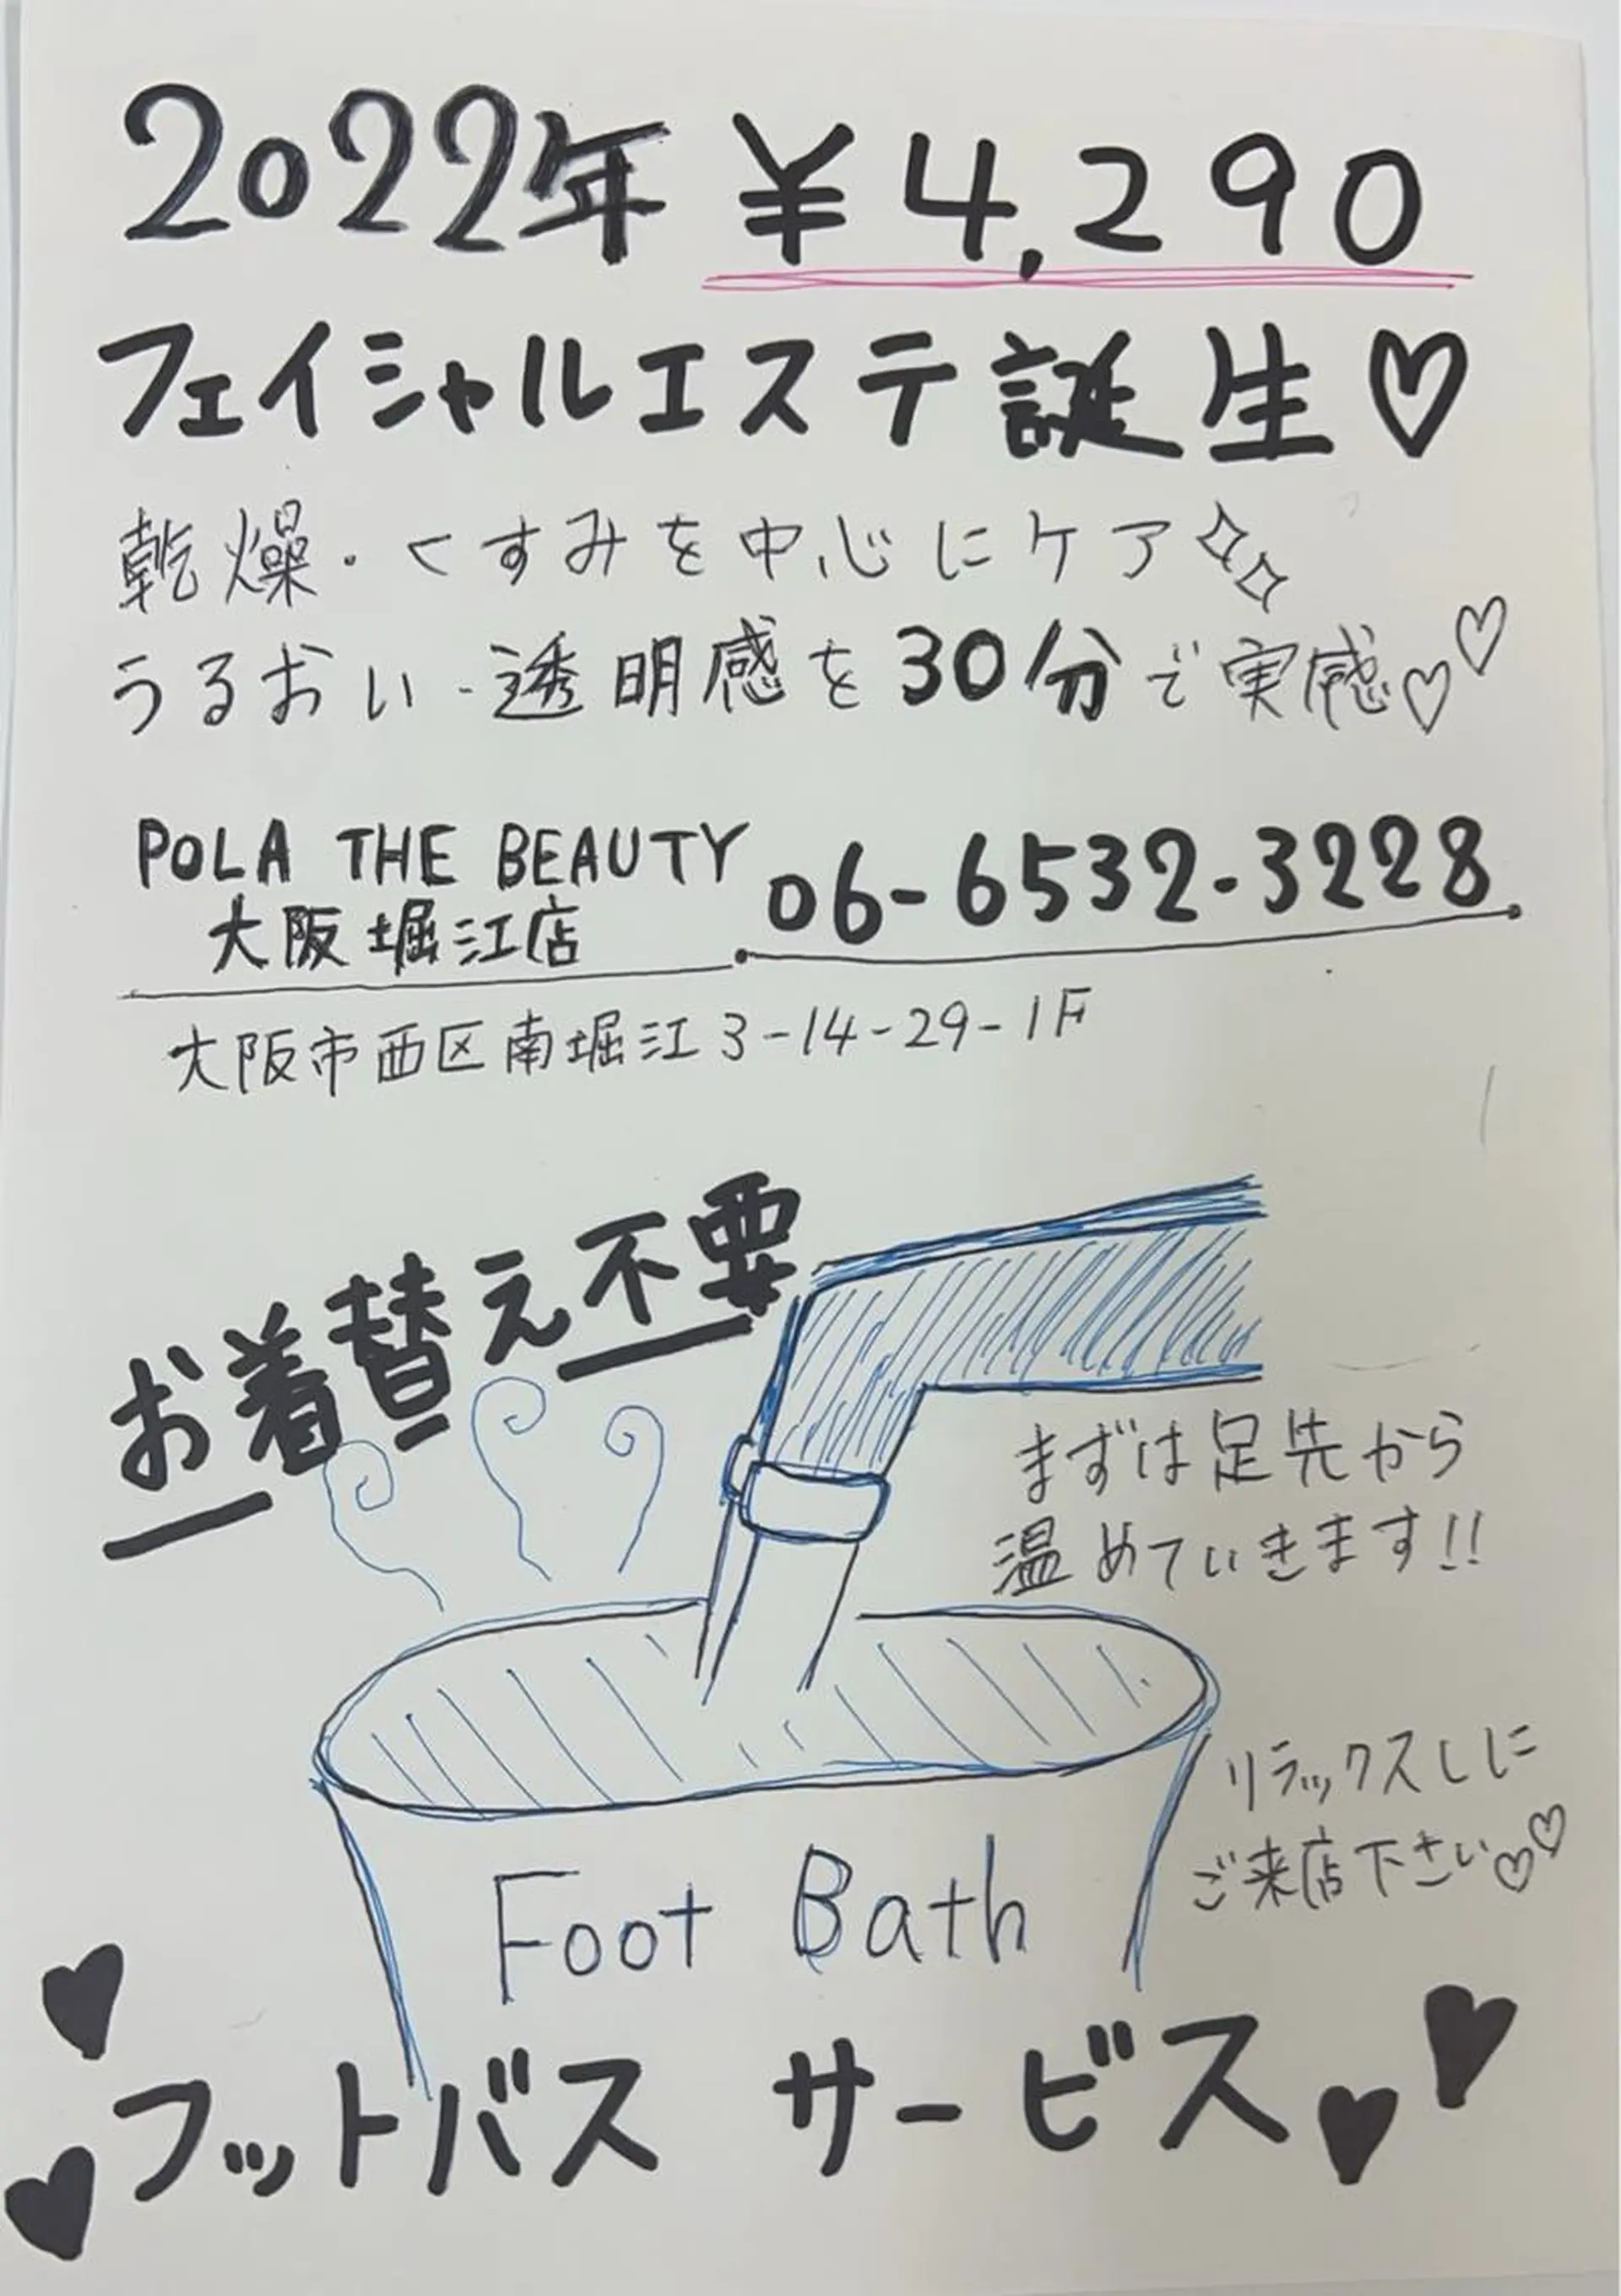 2022年 ¥4,290
フェイシャルエステ誕生♡
乾燥・くすみを中心にケア
うるおい・透明感を30分で実感♡♡
POLA THE BEAUTY
大阪堀江店
06-6532-3228
大阪市西区南堀江3-14-29-1F
お着替え不要
まずは足先から
温めていきます!!
リラックスしに
ご来店下さい♡♡
Foot Bath
フットバス サービス